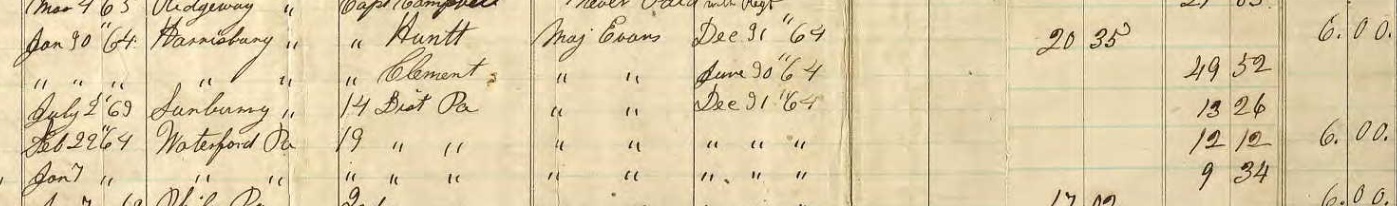 Mar 4 63 Ridgeway " Capt Campbell Never Paid with Regt
Jan 30 "64 Harrisburg " " Huntt Maj Evans Dec 31 "64 20 35 6.00.
" " " " " " Clement " " June 30 "64 49 52
July 2 "63 Sunbury " 14 Dist Pa " " Dec 31 "64 13 26
Feb 22 "64 Waterford Pa 19 " " " " " " " 12 12 6.00.
Jan 7 " " " " " " " " " " " 9 34
Pa 17 02 6.00.